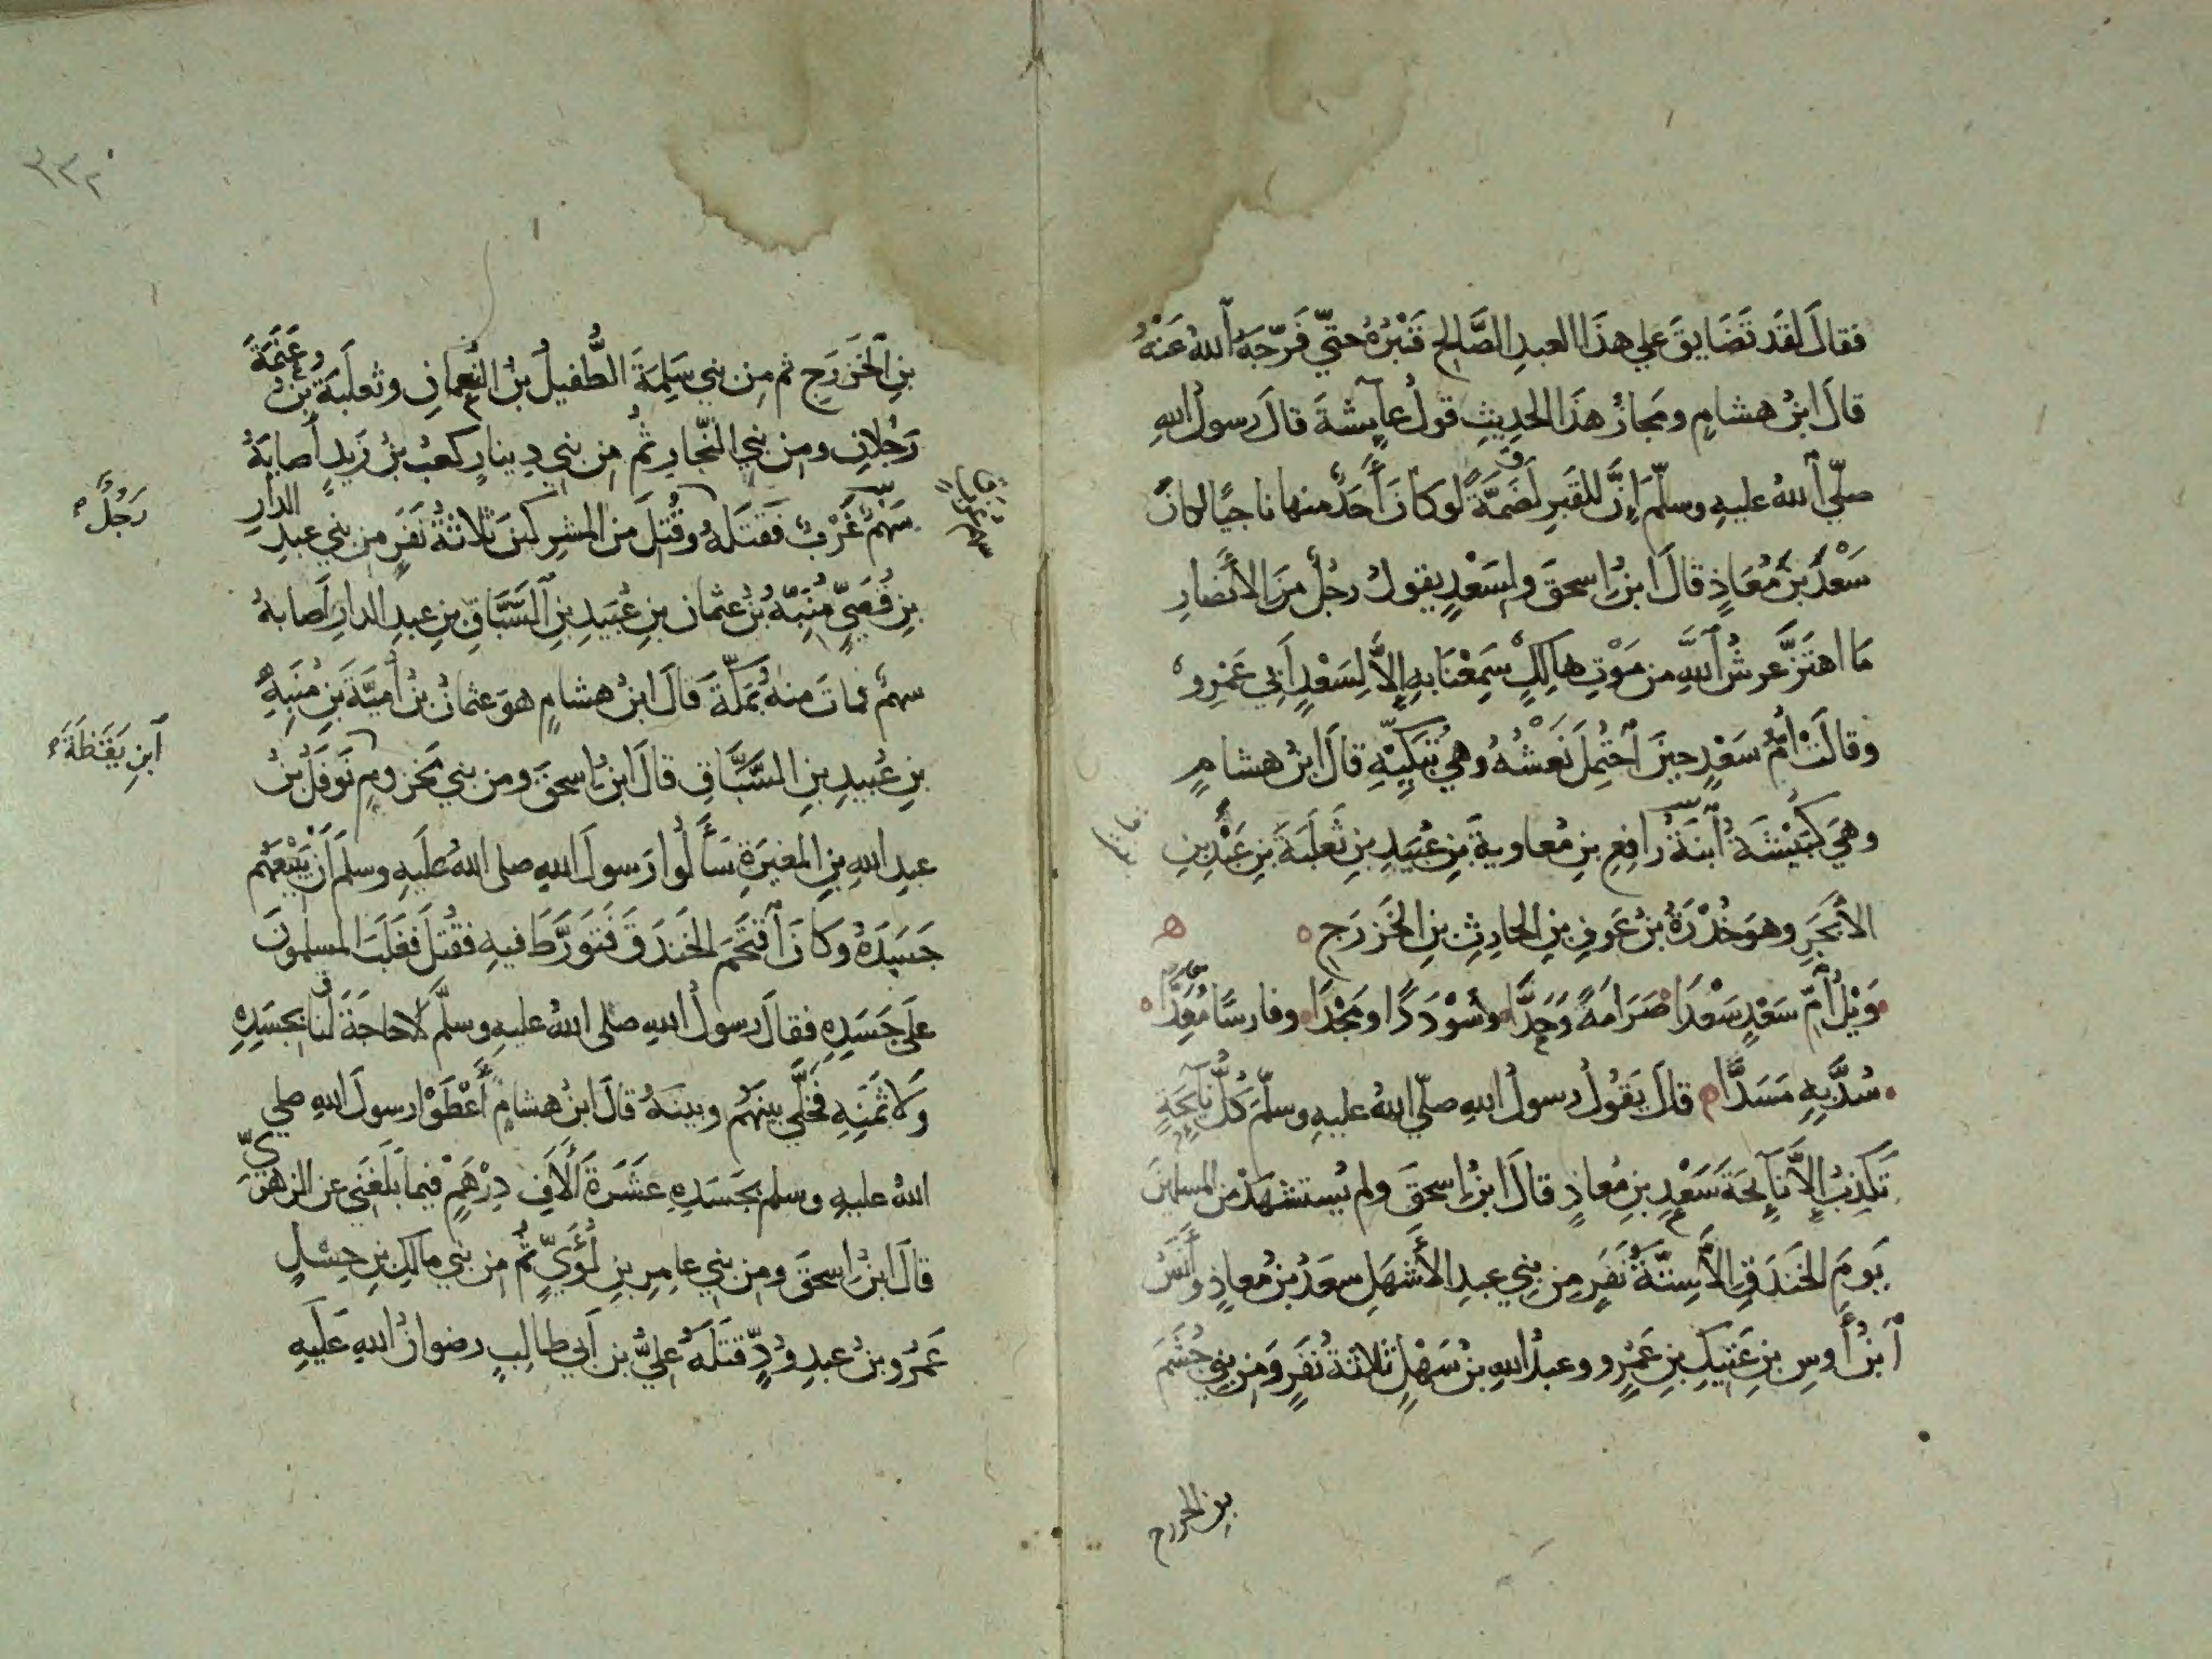 فقالَ لقَد تَضَايقَ علي هذَا العبدِ الصَّالحِ قَبْرُهُ حتّي فَرّجَهُ اللهُ عَنْهُ
قالَ ابنُ هشامٍ ومَجازُ هذَا الحدِيثِ قولُ عآيشةَ قالَ رسولُ اللهِ
صلّي اللهُ عليهِ وسلّم إِنَّ للقَبرِ لَضَمَّةً لوكَانَ أَحَدٌ منها ناجيًا لكانَ
سَعْدُ بنُ مُعَاذٍ قالَ ابنُ إسحقَ ولِسَعْدٍ يقولُ رجُلٌ منَ الأَنصارِ
مَا اهتَزَّ عرشُ اللهِ من مَوْتِ هالِكٍ سَمِعْنَا بهِ إلاَّ لِسَعْدٍ أَبي عَمْرِو
وقالَتْ أُمُّ سَعْدٍ حينَ احْتُمِلَ نَعْشُهُ وهيَ تُبَكِيّهِ قالَ ابنُ هشامٍ
وهيَ كُبَيْشَةُ ابنَةُ رافِعِ بنِ مُعاويةَ بنِ عُبَيدِ بنِ ثَعلَبَةَ بنِ عَبْدِ بنِ
الأَبْجَرِ وهوَ خُدْرَةُ بنُ عَوفِ بنِ الحارِثِ بنِ الخَزرَجِ
وَيْلُ أُمِّ سَعْدٍ سَعْدَا صَرَامَةً وَحَدَّا وسُوْدَدًا ومَجْدَا وفارسًا مُعَدَّا
سُدَّ بِهِ مَسَدَّا قالَ يَقُولُ رسولُ اللهِ صلّي اللهُ عليهِ وسلّمَ كُلُّ نآيحَةٍ
تَكذِبُ إلاَّ نآيحَةَ سَعْدِ بنِ مُعاذٍ قالَ ابنُ إسحقَ ولم يُستشهَدْ منَ المسلمينَ
يَومَ الخَندَقِ إلاَّ سِتَّةُ نَفَرٍ مِن بني عبدِ الأَشهَلِ سعَدُ بنُ مُعاذٍ وأَنَسُ
ابنُ أَوسِ بنِ عَتِيكِ بنِ عَمْرٍو وعبدُ اللهِ بنُ سَهْلٍ ثلاثةُ نَفَرٍ ومِن بني جُشَمَ
بن الخزرج
٣٣٠
بنِ الخَزرَجِ ثم مِن بني سَلِمَةَ الطُّفيلُ بنُ النُّعمانِ وثعلَبَةُ بنُ غَنَمَةَ
رَجُلانِ ومن بني النجّارِ ثمُ مِن بني دِينارٍ كعبُ بنُ زَيدٍ أَصابَهُ
سَهمٌ غَرْبٌ فَقتَلهُ وقُتِلَ منَ المشرِكينَ ثلاثةُ نَفَرٍ من بني عبدِ الدارِ
بنِ قُصَيٍّ مُنَبِّهُ بنُ عثمانَ بنِ عُبَيدِ بنِ السَّبَّاقِ بنِ عبدِ الدارِ أَصابهُ
سهمٌ فماتَ منهُ بمَكّةَ قالَ ابنُ هشامٍ هوَ عثمانُ بنُ أُميَّةَ بنِ مُنَبِّهِ
بنِ عُبيدِ بنِ السَّبَّاقِ قالَ ابنُ إسحقَ ومن بني مَخزومِ نَوفَلُ بنُ
عبدِ اللهِ بنِ المغيرَةِ سَأَلُوا رَسولَ اللهِ صلى اللهُ عَلَيهِ وسلمَ أَن يَبيعَهُم
جَسَدَهُ وكانَ اقتَحَمَ الخَندَقَ فَتَورَّطَ فيهِ فقُتلَ فغَلَبَ المسلمونَ
عَلَى جَسَدِهِ فقالَ رسولُ اللهِ صلى اللهُ عليهِ وسلّم لاحاجَةَ لنا بجَسَدِهِ
وَلا ثَمَنِهِ فخَلّي بينَهُم وبينَهُ قالَ ابنُ هشامٍ أَعْطَوْا رسولَ اللهِ صلي
اللهُ عليهِ وسلم بجَسَدِهِ عشَرَةَ آلافِ دِرْهَمٍ فيما بَلَغَني عن الزهريِّ
قالَ ابنُ إسحقَ ومِن بني عامِرِ بنِ لُؤَيٍّ ثم مِن بني مالِكِ بنِ حِسْلٍ
عَمرُو بنُ عبدِ وُدٍّ قتَلَهُ عليُّ بنُ أبي طالِبٍ رضوانُ اللهِ عَلَيهِ
رَجُلٌ
ابنِ يَقَظَةَ